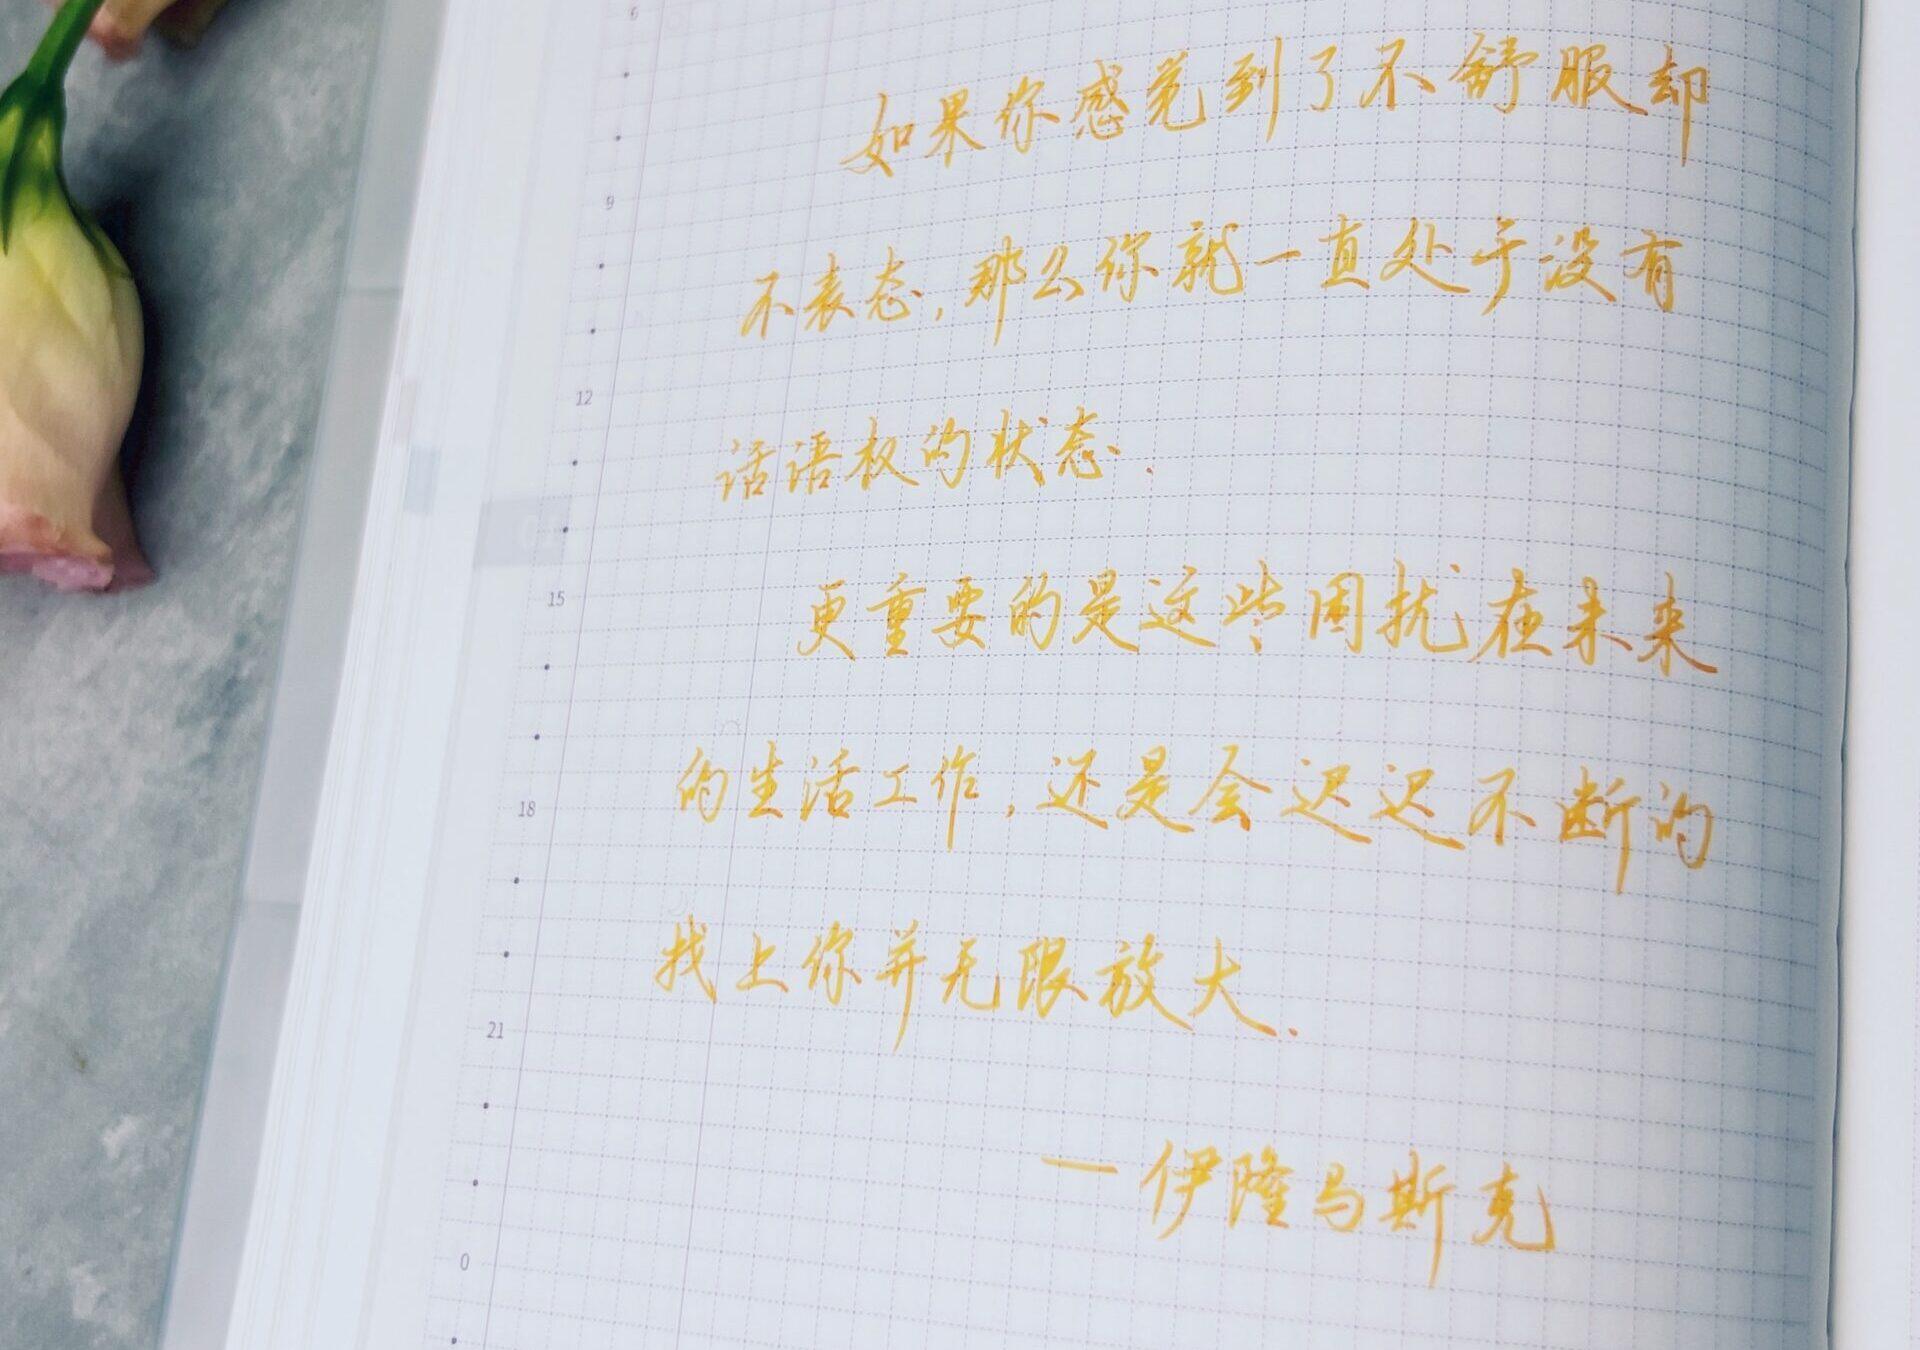 6
如果你感觉到了不舒服却
9
不表态,那么你就一直处于没有
12
话语权的状态.
15
更重要的是这些困扰在未来
的生活工作,还是会迟迟不断的
18
找上你并无限放大.
21
一伊隆马斯克
0